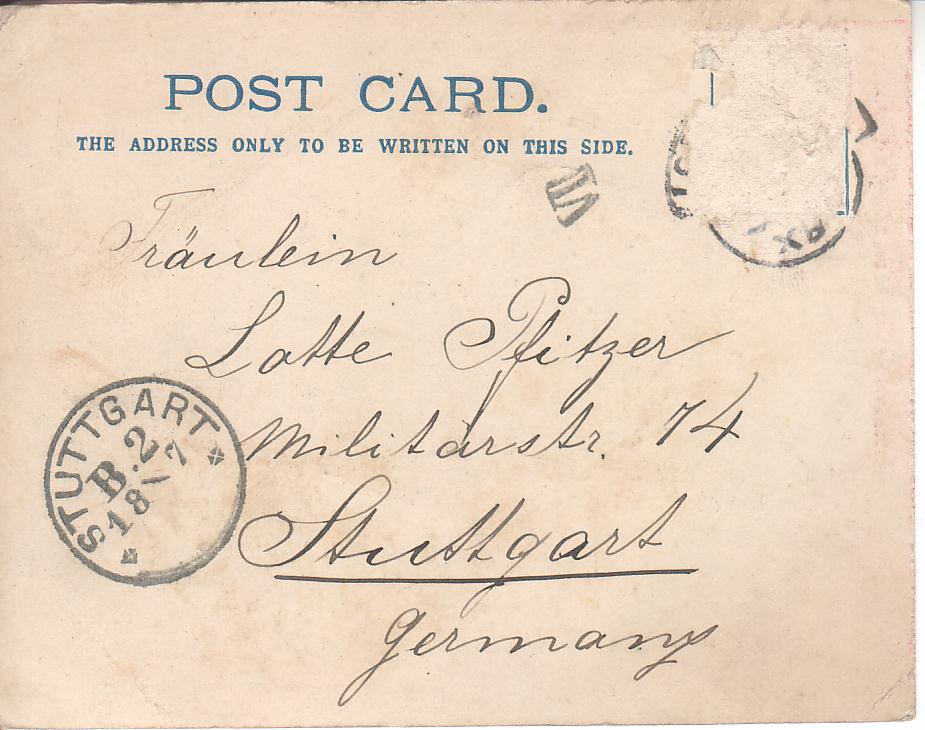 POST CARD.
THE ADDRESS ONLY TO BE WRITTEN ON THIS SIDE.
VII
Fräulein
Lotte Pfitzer
Militärstr. 74
Stuttgart
Germany
STUTTGART
B. 2
18/7